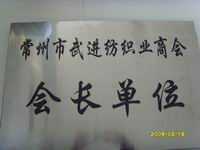 常州市武进纺织业商会
会长单位
2008/02/18